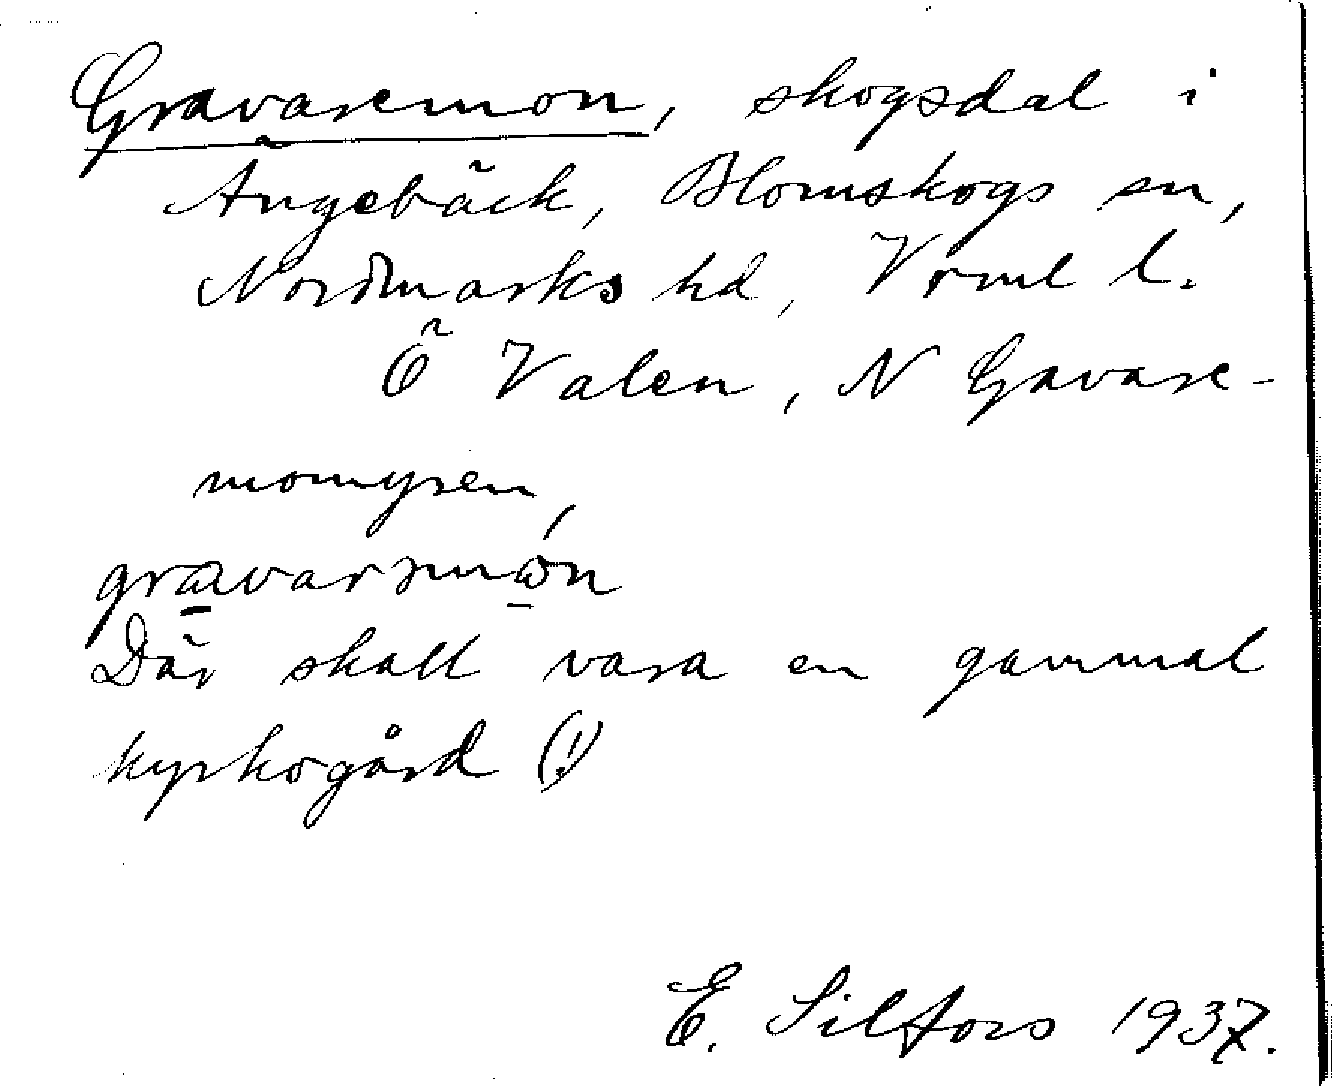 Gravaremon, skogsdal i
Ängebäck, Blomskogs sn,
Nordmarks hd, Vrml l.
Ö Valen, N Gavare-
momyren,
Där skall vara en gammal
kyrkogård (!)
E. Silfors 1937.